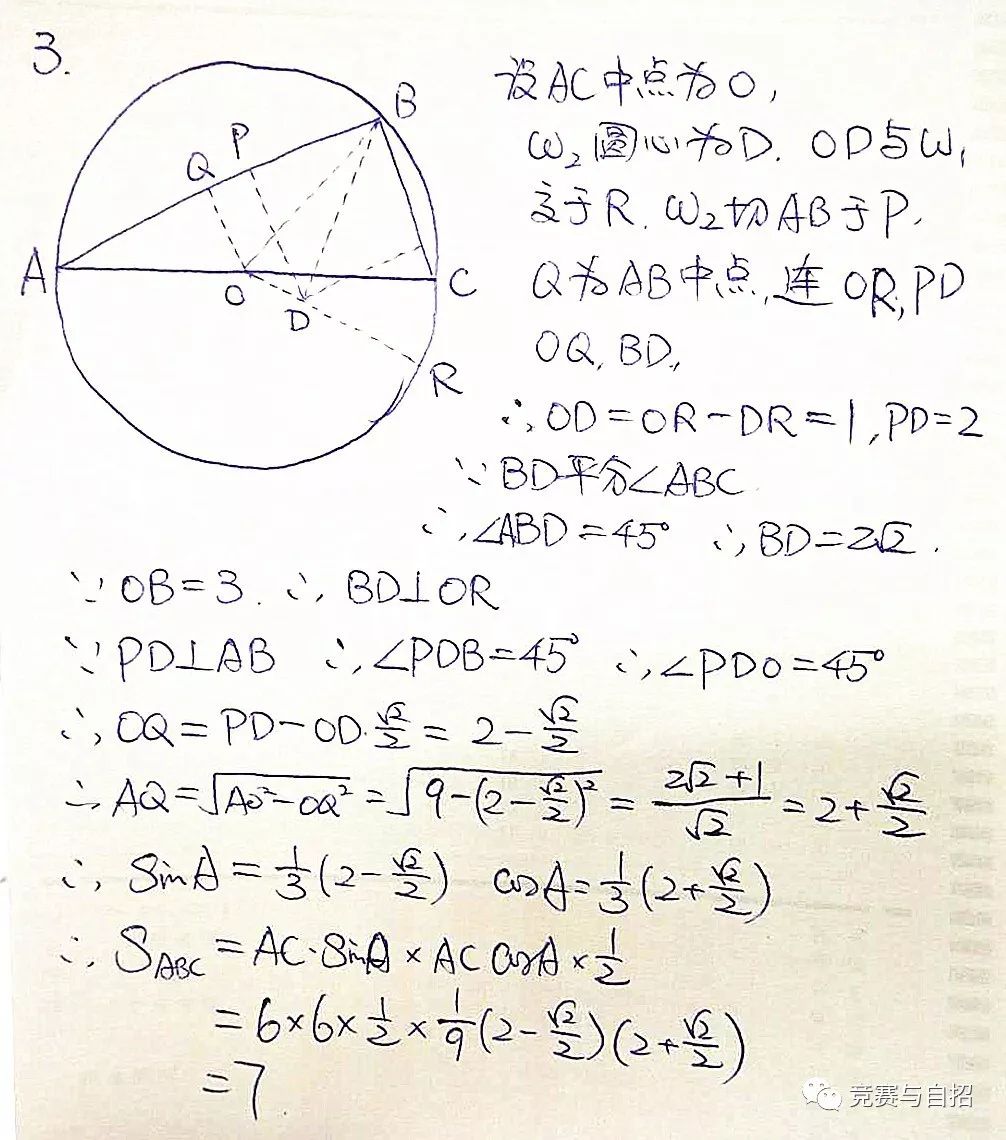 3.
B
P
Q
A
O
D
C
R
设AC中点为O,
ω₂圆心为D. OD与ω₁
交于R. ω₂切AB于P.
Q为AB中点, 连OR, PD
OQ, BD,
∴OD=OR-DR=1, PD=2
∵BD平分∠ABC
∴∠ABD=45° ∴BD=2√2.
∵OB=3. ∴BD⊥OR
∵PD⊥AB ∴∠PDB=45° ∴∠PDO=45°
∴OQ=PD-OD·√2/2=2-√2/2
∴AQ=√(AO²-OQ²)=√(9-(2-√2/2)²)=(2√2+1)/√2=2+√2/2
∴SinA=1/3(2-√2/2) cosA=1/3(2+√2/2)
∴S_ABC=AC·SinA×AC cosA×1/2
=6×6×1/2×1/9(2-√2/2)(2+√2/2)
=7
竞赛与自招